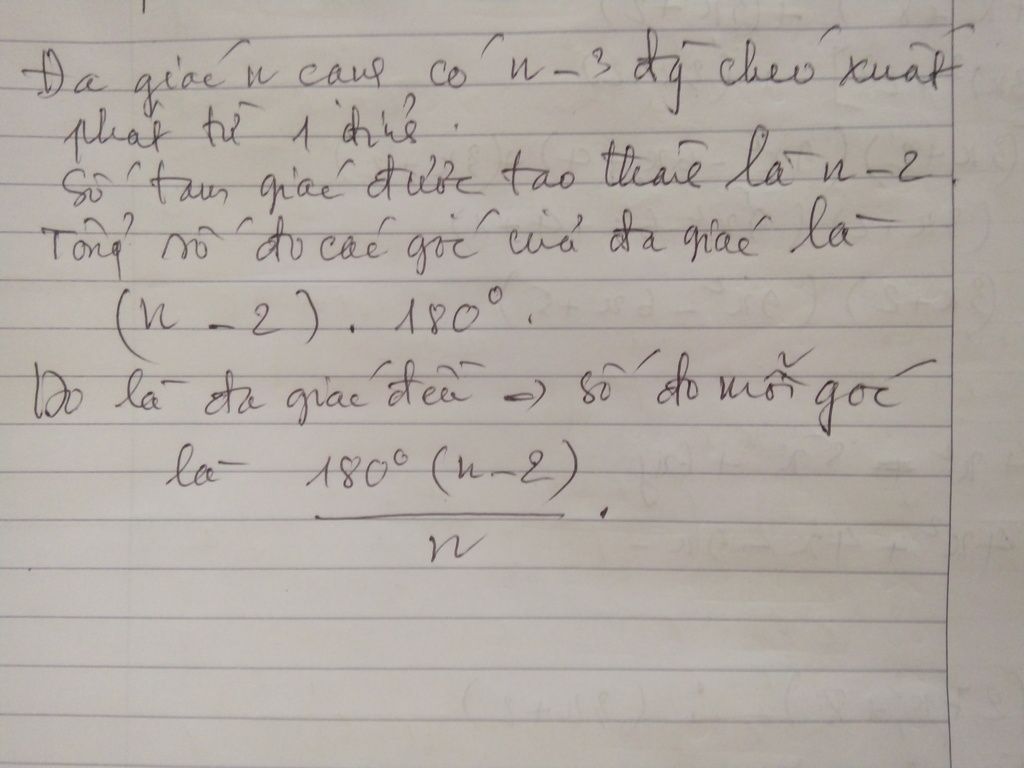 Đa giác n cạnh có n-3 đg chéo xuất
phát từ 1 đỉnh.
Số tam giác được tạo thành là n-2.
Tổng số đo các góc của đa giác là
(n - 2) . 180⁰.
Do là đa giác đều => số đo mỗi góc
là 180⁰ (n-2) / n .